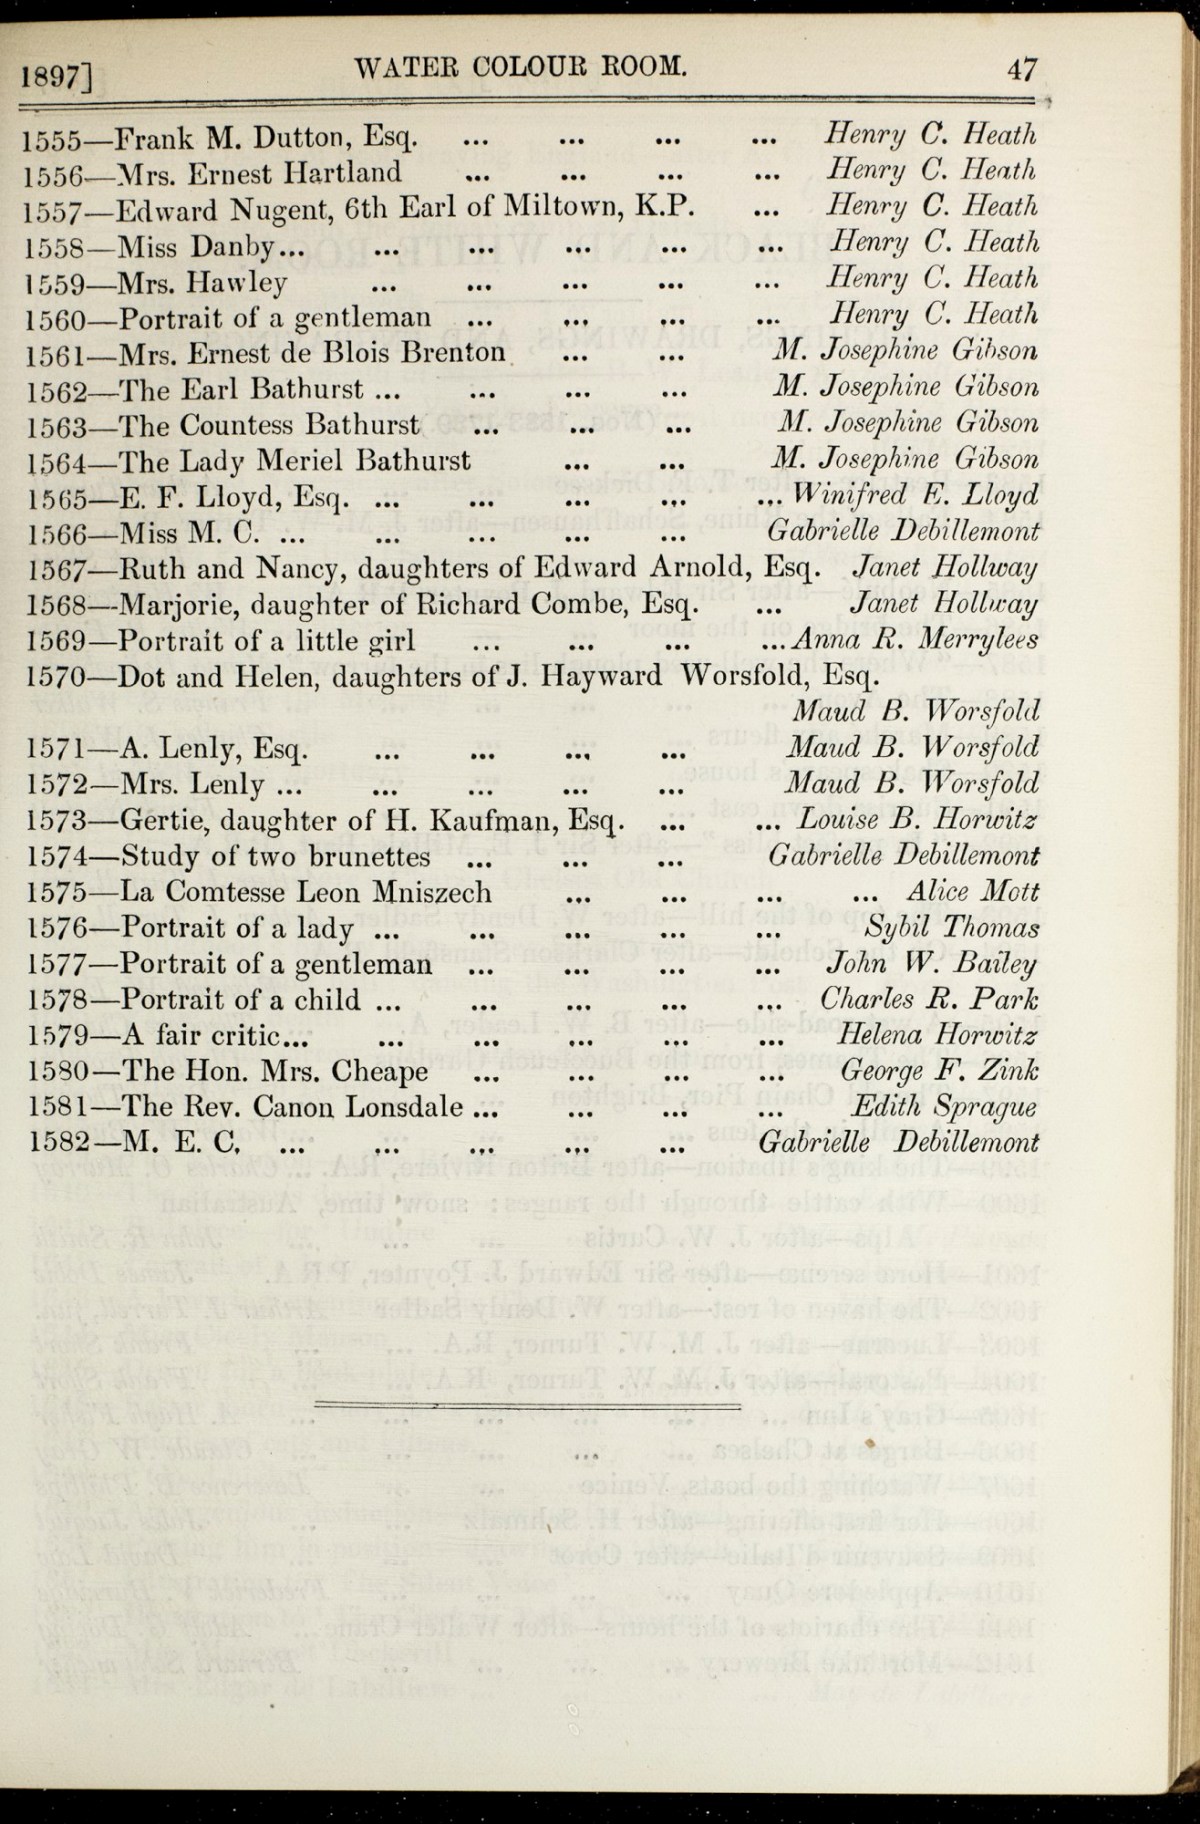 1897] WATER COLOUR ROOM. 47
1555—Frank M. Dutton, Esq. ... ... ... ... Henry C. Heath
1556—Mrs. Ernest Hartland ... ... ... ... Henry C. Heath
1557—Edward Nugent, 6th Earl of Miltown, K.P. ... Henry C. Heath
1558—Miss Danby... ... ... ... ... ... Henry C. Heath
1559—Mrs. Hawley ... ... ... ... ... Henry C. Heath
1560—Portrait of a gentleman ... ... ... ... Henry C. Heath
1561—Mrs. Ernest de Blois Brenton ... ... M. Josephine Gibson
1562—The Earl Bathurst ... ... ... ... M. Josephine Gibson
1563—The Countess Bathurst ... ... ... M. Josephine Gibson
1564—The Lady Meriel Bathurst ... ... M. Josephine Gibson
1565—E. F. Lloyd, Esq. ... ... ... ... ... Winifred E. Lloyd
1566—Miss M. C. ... ... ... ... ... Gabrielle Debillemont
1567—Ruth and Nancy, daughters of Edward Arnold, Esq. Janet Hollway
1568—Marjorie, daughter of Richard Combe, Esq. ... Janet Hollway
1569—Portrait of a little girl ... ... ... ... Anna R. Merrylees
1570—Dot and Helen, daughters of J. Hayward Worsfold, Esq.
Maud B. Worsfold
1571—A. Lenly, Esq. ... ... ... ... Maud B. Worsfold
1572—Mrs. Lenly ... ... ... ... ... Maud B. Worsfold
1573—Gertie, daughter of H. Kaufman, Esq. ... ... Louise B. Horwitz
1574—Study of two brunettes ... ... ... Gabrielle Debillemont
1575—La Comtesse Leon Mniszech ... ... ... ... Alice Mott
1576—Portrait of a lady ... ... ... ... ... Sybil Thomas
1577—Portrait of a gentleman ... ... ... ... John W. Bailey
1578—Portrait of a child ... ... ... ... ... Charles R. Park
1579—A fair critic... ... ... ... ... ... Helena Horwitz
1580—The Hon. Mrs. Cheape ... ... ... ... George F. Zink
1581—The Rev. Canon Lonsdale ... ... ... ... Edith Sprague
1582—M. E. C. ... ... ... ... ... Gabrielle Debillemont